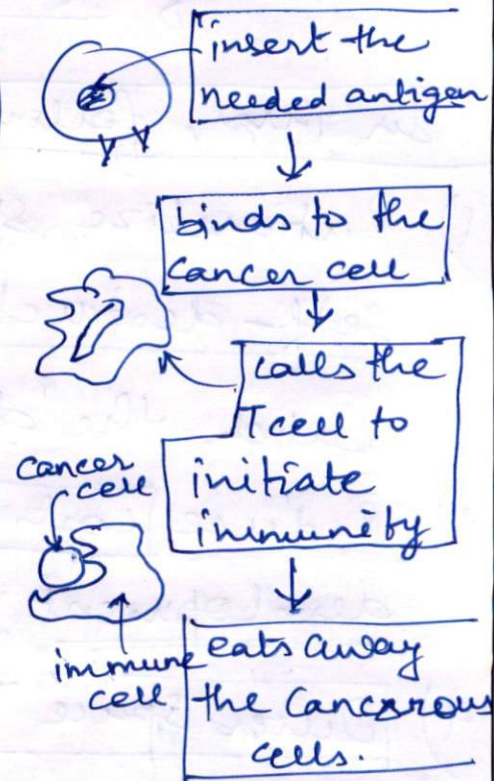 insert the
needed antigen
binds to the
cancer cell
calls the
T cell to
initiate
immunity
cancer
cell
immune
cell
eats away
the cancerous
cells.